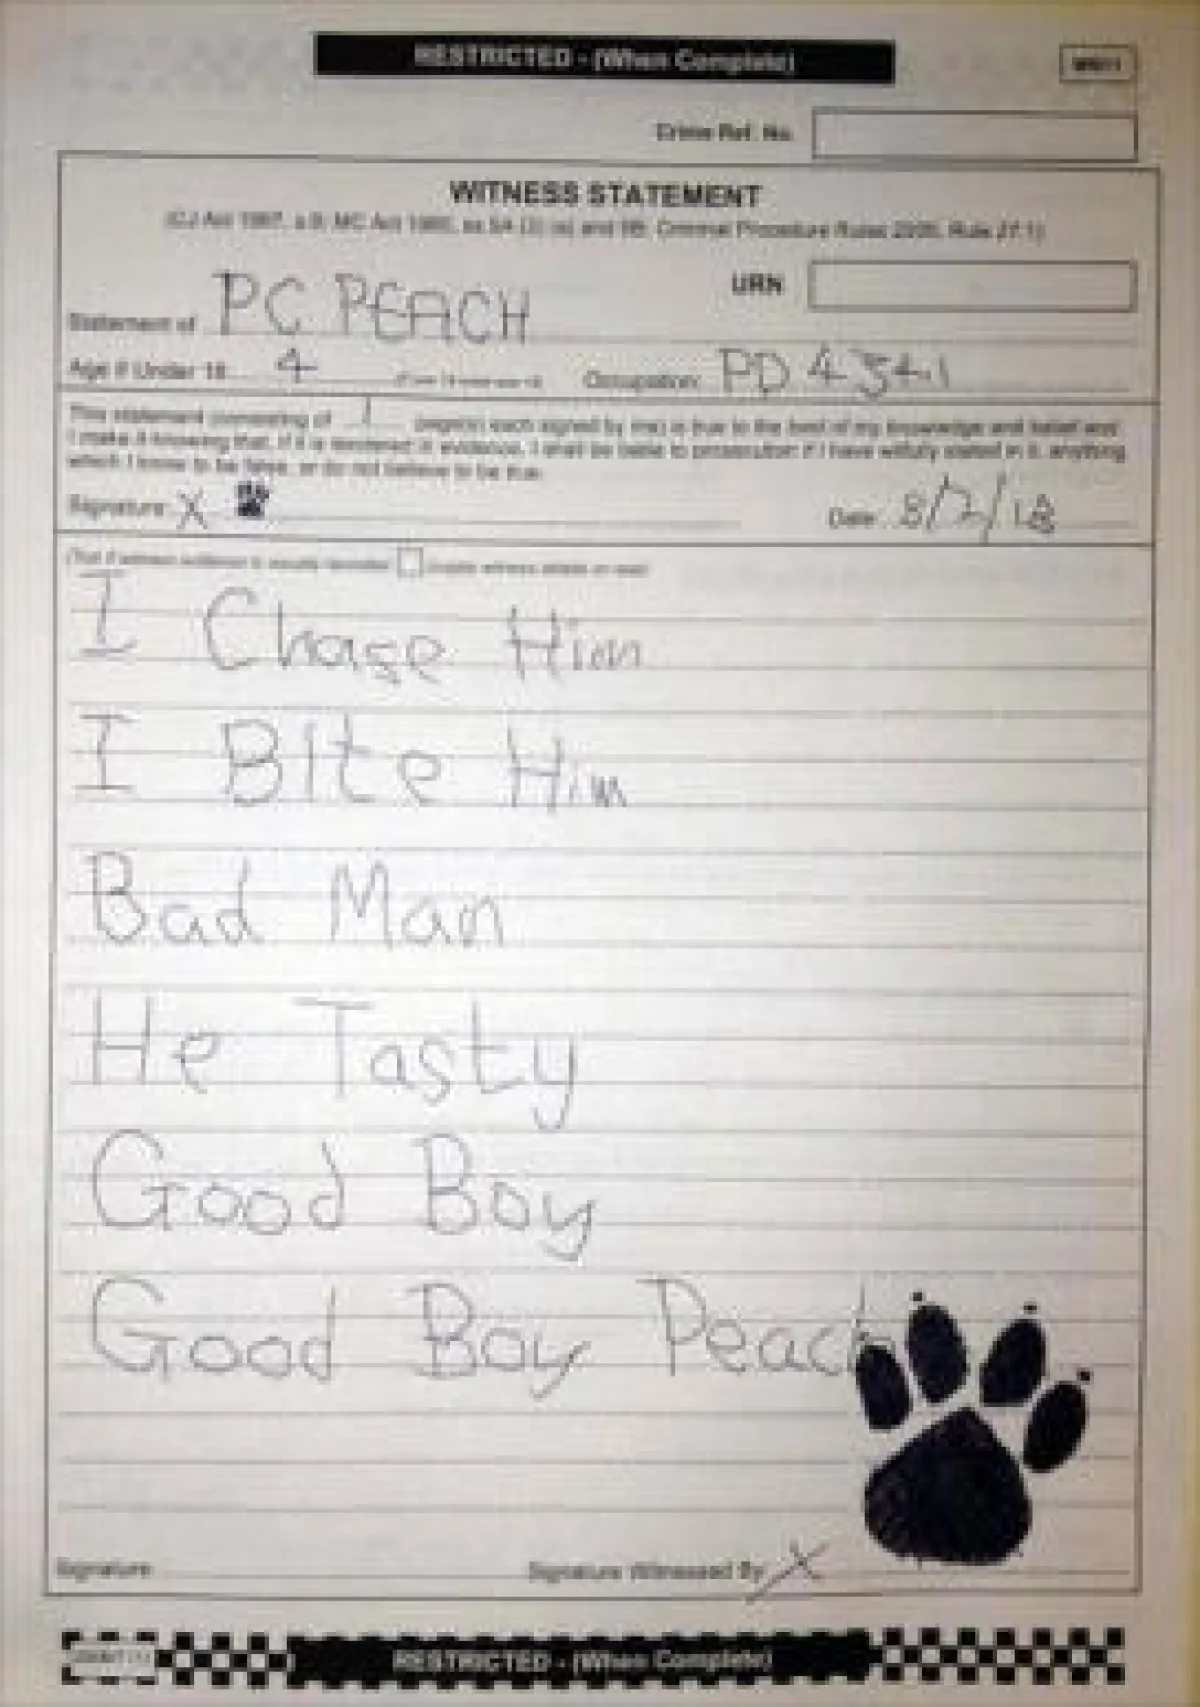 RESTRICTED - (When Complete)
MG11
Crime Ref. No.
WITNESS STATEMENT
(CJ Act 1967, s.9; MC Act 1980, ss.5A (3) (a) and 5B; Criminal Procedure Rules 2005, Rule 27.1)
URN
Statement of PC PEACH
Age if Under 18 4 Occupation: PD 4341
This statement consisting of 1 (page(s) each signed by me) is true to the best of my knowledge and belief and
I make it knowing that, if it is tendered in evidence, I shall be liable to prosecution if I have wilfully stated in it, anything
which I know to be false, or do not believe to be true.
Signature: X Date: 8/2/18
(Tick if witness evidence is visually recorded (supply witness details on rear)
I Chase Him
I Bite Him
Bad Man
He Tasty
Good Boy
Good Boy Peach
Signature Signature Witnessed By X
RESTRICTED - (When Complete)